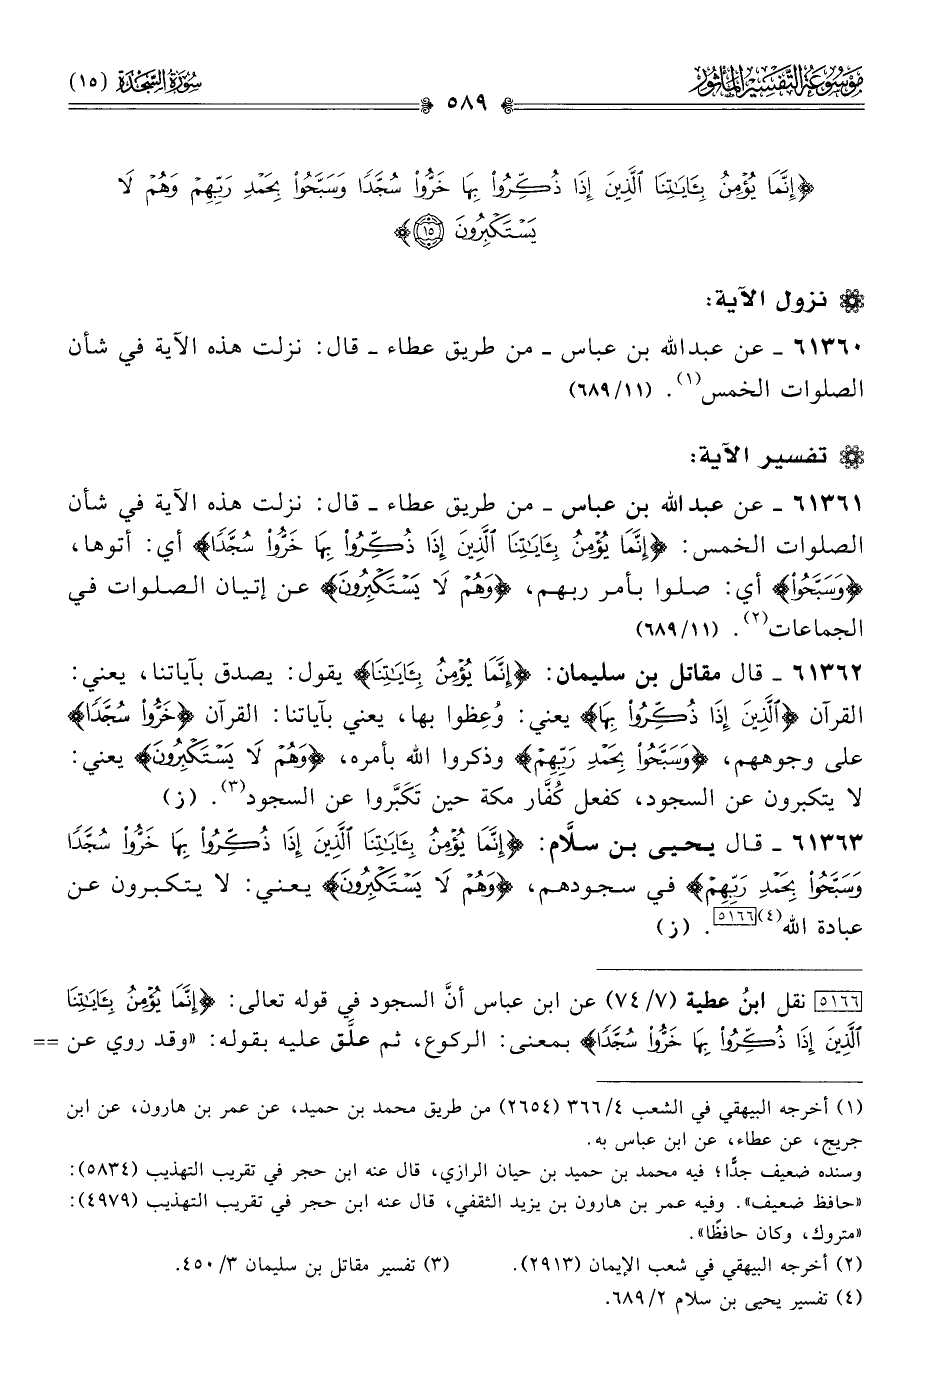 مَوْسُوعَة التَّفْسِير المَأْثُور
سُورَةُ السَّجْدَة (١٥)
٥٨٩
﴿إِنَّمَا يُؤْمِنُ بِـَٔايَٰتِنَا ٱلَّذِينَ إِذَا ذُكِّرُوا۟ بِهَا خَرُّوا۟ سُجَّدًا وَسَبَّحُوا۟ بِحَمْدِ رَبِّهِمْ وَهُمْ لَا
يَسْتَكْبِرُونَ ١٥﴾
نزول الآية:
٦١٣٦٠ ـ عن عبدالله بن عباس ـ من طريق عطاء ـ قال: نزلت هذه الآية في شأن
الصلوات الخمس(١). (٦٨٩/١١)
تفسير الآية:
٦١٣٦١ ـ عن عبدالله بن عباس ـ من طريق عطاء ـ قال: نزلت هذه الآية في شأن
الصلوات الخمس: ﴿إِنَّمَا يُؤْمِنُ بِـَٔايَٰتِنَا ٱلَّذِينَ إِذَا ذُكِّرُوا۟ بِهَا خَرُّوا۟ سُجَّدًا﴾ أي: أتوها،
﴿وَسَبَّحُوا۟﴾ أي: صلوا بأمر ربهم، ﴿وَهُمْ لَا يَسْتَكْبِرُونَ﴾ عن إتيان الصلوات في
الجماعات(٢). (٦٨٩/١١)
٦١٣٦٢ ـ قال مقاتل بن سليمان: ﴿إِنَّمَا يُؤْمِنُ بِـَٔايَٰتِنَا﴾ يقول: يصدق بآياتنا، يعني:
القرآن ﴿ٱلَّذِينَ إِذَا ذُكِّرُوا۟ بِهَا﴾ يعني: وُعِظوا بها، يعني بآياتنا: القرآن ﴿خَرُّوا۟ سُجَّدًا﴾
على وجوههم، ﴿وَسَبَّحُوا۟ بِحَمْدِ رَبِّهِمْ﴾ وذكروا الله بأمره، ﴿وَهُمْ لَا يَسْتَكْبِرُونَ﴾ يعني:
لا يتكبرون عن السجود، كفعل كُفَّار مكة حين تَكَبَّروا عن السجود(٣). (ز)
٦١٣٦٣ ـ قال يحيى بن سلَّام: ﴿إِنَّمَا يُؤْمِنُ بِـَٔايَٰتِنَا ٱلَّذِينَ إِذَا ذُكِّرُوا۟ بِهَا خَرُّوا۟ سُجَّدًا
وَسَبَّحُوا۟ بِحَمْدِ رَبِّهِمْ﴾ في سجودهم، ﴿وَهُمْ لَا يَسْتَكْبِرُونَ﴾ يعني: لا يتكبرون عن
عبادة الله(٤)[٥١٦٦]. (ز)
[٥١٦٦] نقل ابنُ عطية (٧/ ٧٤) عن ابن عباس أنَّ السجود في قوله تعالى: ﴿إِنَّمَا يُؤْمِنُ بِـَٔايَٰتِنَا
ٱلَّذِينَ إِذَا ذُكِّرُوا۟ بِهَا خَرُّوا۟ سُجَّدًا﴾ بمعنى: الركوع، ثم علَّق عليه بقوله: «وقد روي عن ==
(١) أخرجه البيهقي في الشعب ٣٦٦/٤ (٢٦٥٤) من طريق محمد بن حميد، عن عمر بن هارون، عن ابن
جريج، عن عطاء، عن ابن عباس به.
وسنده ضعيف جدًّا؛ فيه محمد بن حميد بن حيان الرازي، قال عنه ابن حجر في تقريب التهذيب (٥٨٣٤):
«حافظ ضعيف». وفيه عمر بن هارون بن يزيد الثقفي، قال عنه ابن حجر في تقريب التهذيب (٤٩٧٩):
«متروك، وكان حافظًا».
(٢) أخرجه البيهقي في شعب الإيمان (٢٩١٣).
(٣) تفسير مقاتل بن سليمان ٤٥٠/٣.
(٤) تفسير يحيى بن سلام ٦٨٩/٢.